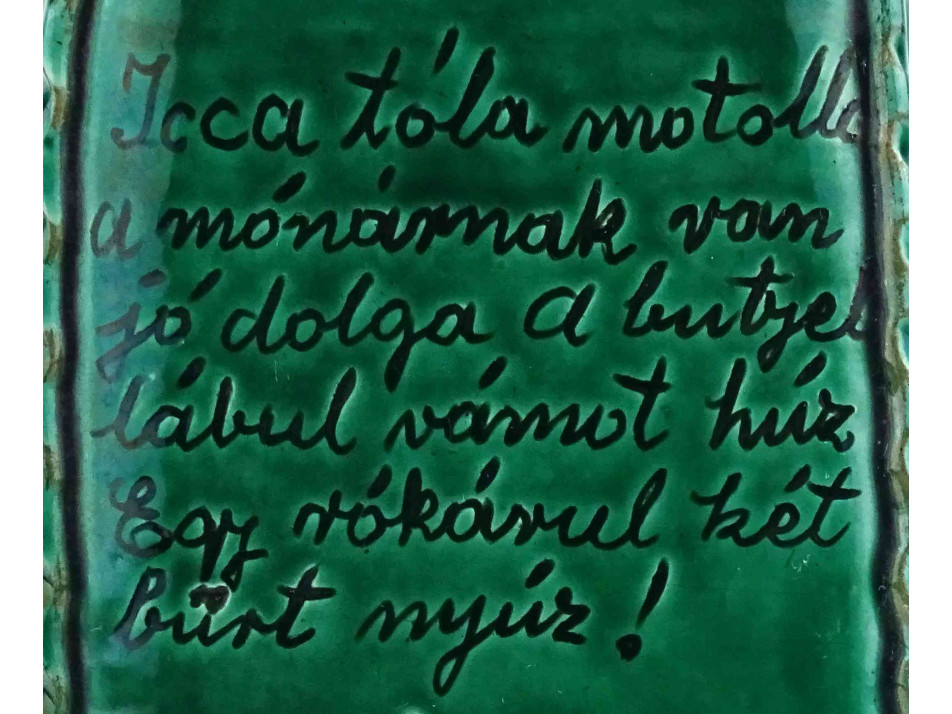 Icca tóla motolla
a mónárnak van
jó dolga a butyel
lábul vámot húz
Egy rókárul két
bürt nyúz!